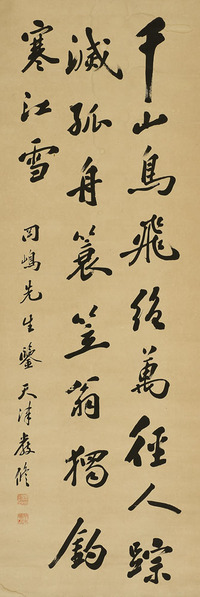 千山鳥飛絕萬徑人踪
滅孤舟簑笠翁獨釣
寒江雪
岡嶋先生鑒 天津嚴修